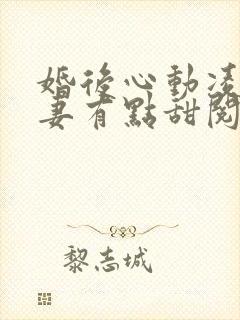 婚後心動凌
妻有點甜閱
黎志城